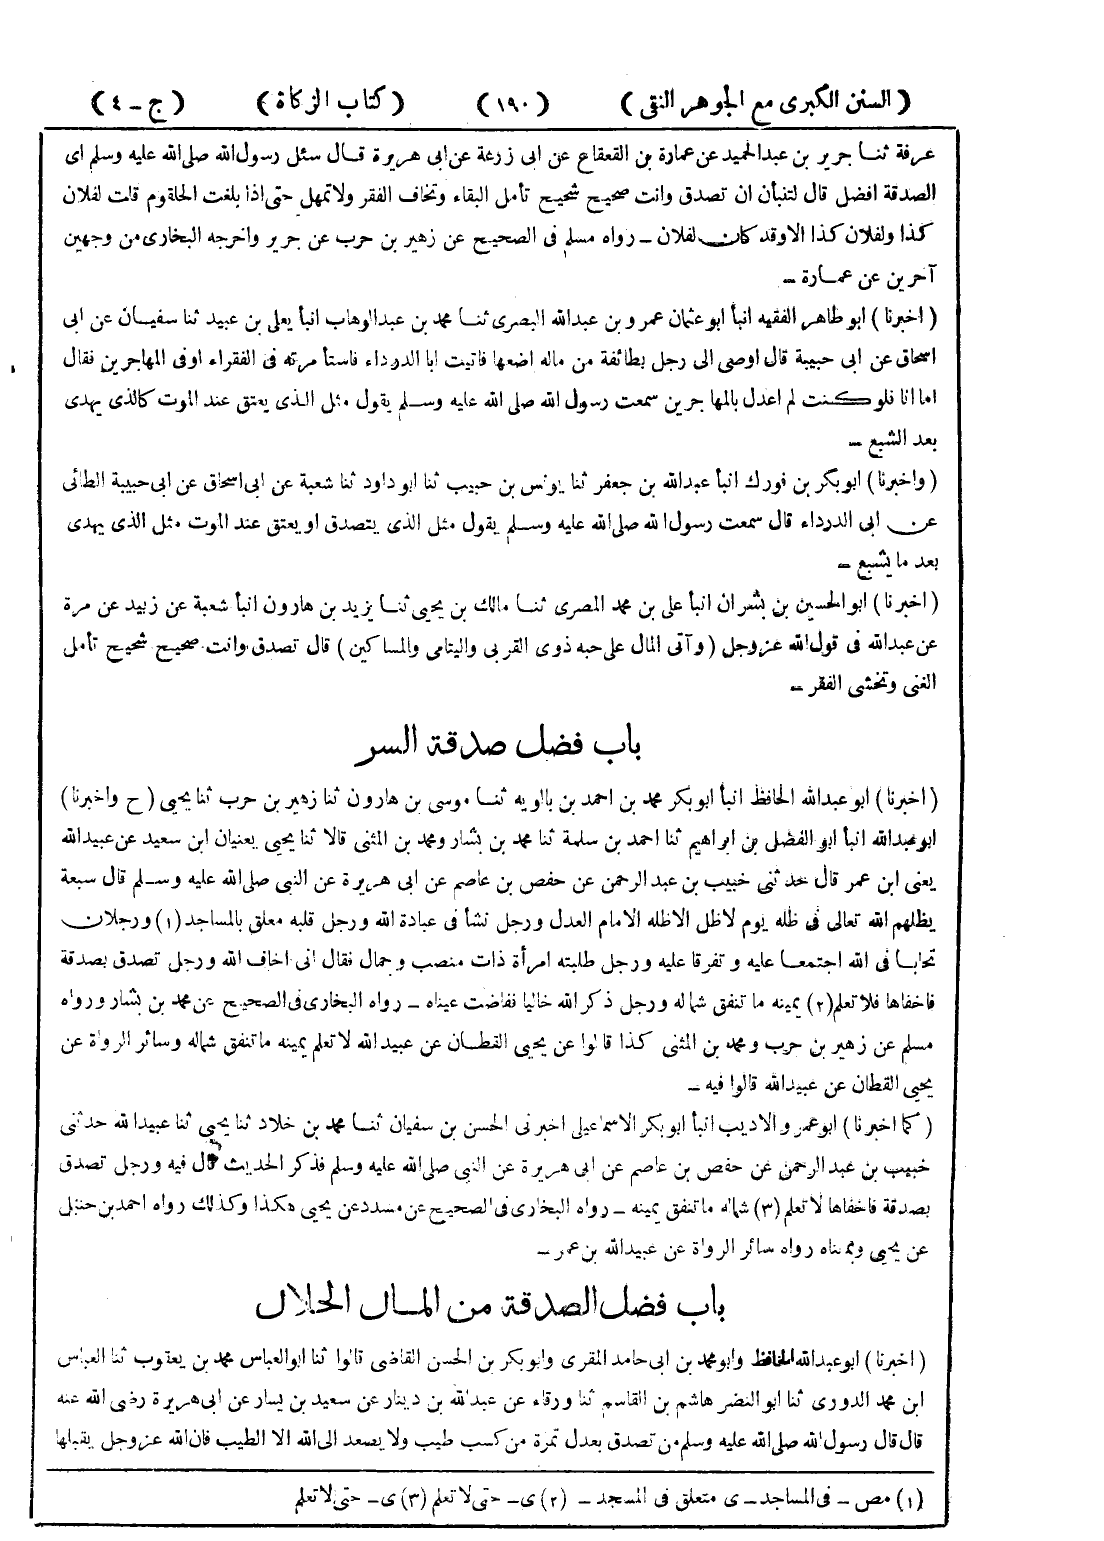 ( السنن الكبرى مع الجوهر النقى ) ( ١٩٠ ) ( كتاب الزكاة ) ( ج ـ ٤ )
عرفة ثنا جرير بن عبدالحميد عن عمارة بن القعقاع عن ابى زرعة عن ابى هريرة قال سئل رسول الله صلى الله عليه وسلم اى
الصدقة افضل قال لتنبأن ان تصدق وانت صحيح شحيح تأمل البقاء وتخاف الفقر ولا تمهل حتى اذا بلغت الحلقوم قلت لفلان
كذا ولفلان كذا الا وقد كان لفلان ـ رواه مسلم فى الصحيح عن زهير بن حرب عن جرير واخرجه البخارى من وجهين
آخرين عن عمارة ـ
( اخبرنا ) ابو طاهر الفقيه انبأ ابو عثمان عمرو بن عبدالله البصرى ثنا محمد بن عبدالوهاب انبأ يعلى بن عبيد ثنا سفيان عن ابى
اسحاق عن ابى حبيبة قال اوصى الى رجل بطائفة من ماله اضعها فاتيت ابا الدرداء فاستأمرته فى الفقراء اوفى المهاجرين فقال
اما انا فلو كنت لم اعدل بالمهاجرين سمعت رسول الله صلى الله عليه وسلم يقول مثل الذى يعتق عند الموت كالذى يهدى
بعد الشبع ـ
( واخبرنا ) ابو بكر بن فورك انبأ عبدالله بن جعفر ثنا يونس بن حبيب ثنا ابو داود ثنا شعبة عن ابى اسحاق عن ابى حبيبة الطائى
عن ابى الدرداء قال سمعت رسول الله صلى الله عليه وسلم يقول مثل الذى يتصدق او يعتق عند الموت مثل الذى يهدى
بعد ما يشبع ـ
( اخبرنا ) ابو الحسين بن بشران انبأ على بن محمد المصرى ثنا مالك بن يحيى ثنا يزيد بن هارون انبأ شعبة عن زبيد عن مرة
عن عبدالله فى قول الله عزوجل ( وآتى المال على حبه ذوى القربى واليتامى والمساكين ) قال تصدق وانت صحيح شحيح تأمل
الغنى وتخشى الفقر ـ
باب فضل صدقة السر
( اخبرنا ) ابو عبدالله الحافظ انبأ ابو بكر محمد بن احمد بن بالويه ثنا موسى بن هارون ثنا زهير بن حرب ثنا يحيى ( ح واخبرنا )
ابو عبدالله انبأ ابو الفضل بن ابراهيم ثنا احمد بن سلمة ثنا محمد بن بشار ومحمد بن المثنى قالا ثنا يحيى يعنيان ابن سعيد عن عبيدالله
يعنى ابن عمر قال حدثنى خبيب بن عبد الرحمن عن حفص بن عاصم عن ابى هريرة عن النبى صلى الله عليه وسلم قال سبعة
يظلهم الله تعالى فى ظله يوم لاظل الا ظله الامام العدل ورجل نشأ فى عبادة الله ورجل قلبه معلق بالمساجد (١) ورجلان
تحابا فى الله اجتمعا عليه و تفرقا عليه ورجل طلبته امرأة ذات منصب وجمال فقال انى اخاف الله ورجل تصدق بصدقة
فاخفاها فلا تعلم (٢) يمينه ما تنفق شماله ورجل ذكر الله خاليا ففاضت عيناه ـ رواه البخارى فى الصحيح عن محمد بن بشار ورواه
مسلم عن زهير بن حرب ومحمد بن المثنى كذا قالوا عن يحيى القطان عن عبيد الله لا تعلم يمينه ما تنفق شماله وسائر الرواة عن
يحيى القطان عن عبيدالله قالوا فيه ـ
( كما اخبرنا ) ابو عمرو الاديب انبأ ابو بكر الاسماعيلى اخبرنى الحسن بن سفيان ثنا محمد بن خلاد ثنا يحيى ثنا عبيدالله حدثنى
خبيب بن عبد الرحمن عن حفص بن عاصم عن ابى هريرة عن النبى صلى الله عليه وسلم فذكر الحديث قال فيه ورجل تصدق
بصدقة فاخفاها لا تعلم (٣) شماله ما تنفق يمينه ـ رواه البخارى فى الصحيح عن مسدد عن يحيى هكذا وكذلك رواه احمد بن حنبل
عن يحيى وبمعناه رواه سائر الرواة عن عبيدالله بن عمر ـ
باب فضل الصدقة من المال الحلال
( اخبرنا ) ابو عبدالله الحافظ وابو محمد بن ابى حامد المقرى وابو بكر بن الحسن القاضى قالوا ثنا ابو العباس محمد بن يعقوب ثنا العباس
ابن محمد الدورى ثنا ابو النضر هاشم بن القاسم ثنا ورقاء عن عبدالله بن دينار عن سعيد بن يسار عن ابى هريرة رضى الله عنه
قال قال رسول الله صلى الله عليه وسلم من تصدق بعدل تمرة من كسب طيب ولا يصعد الى الله الا الطيب فان الله عزوجل يقبلها
(١) مص ـ فى المساجد ـ ى متعلق فى المسجد ـ (٢) ى ـ حتى لا تعلم (٣) ى ـ حتى لا تعلم